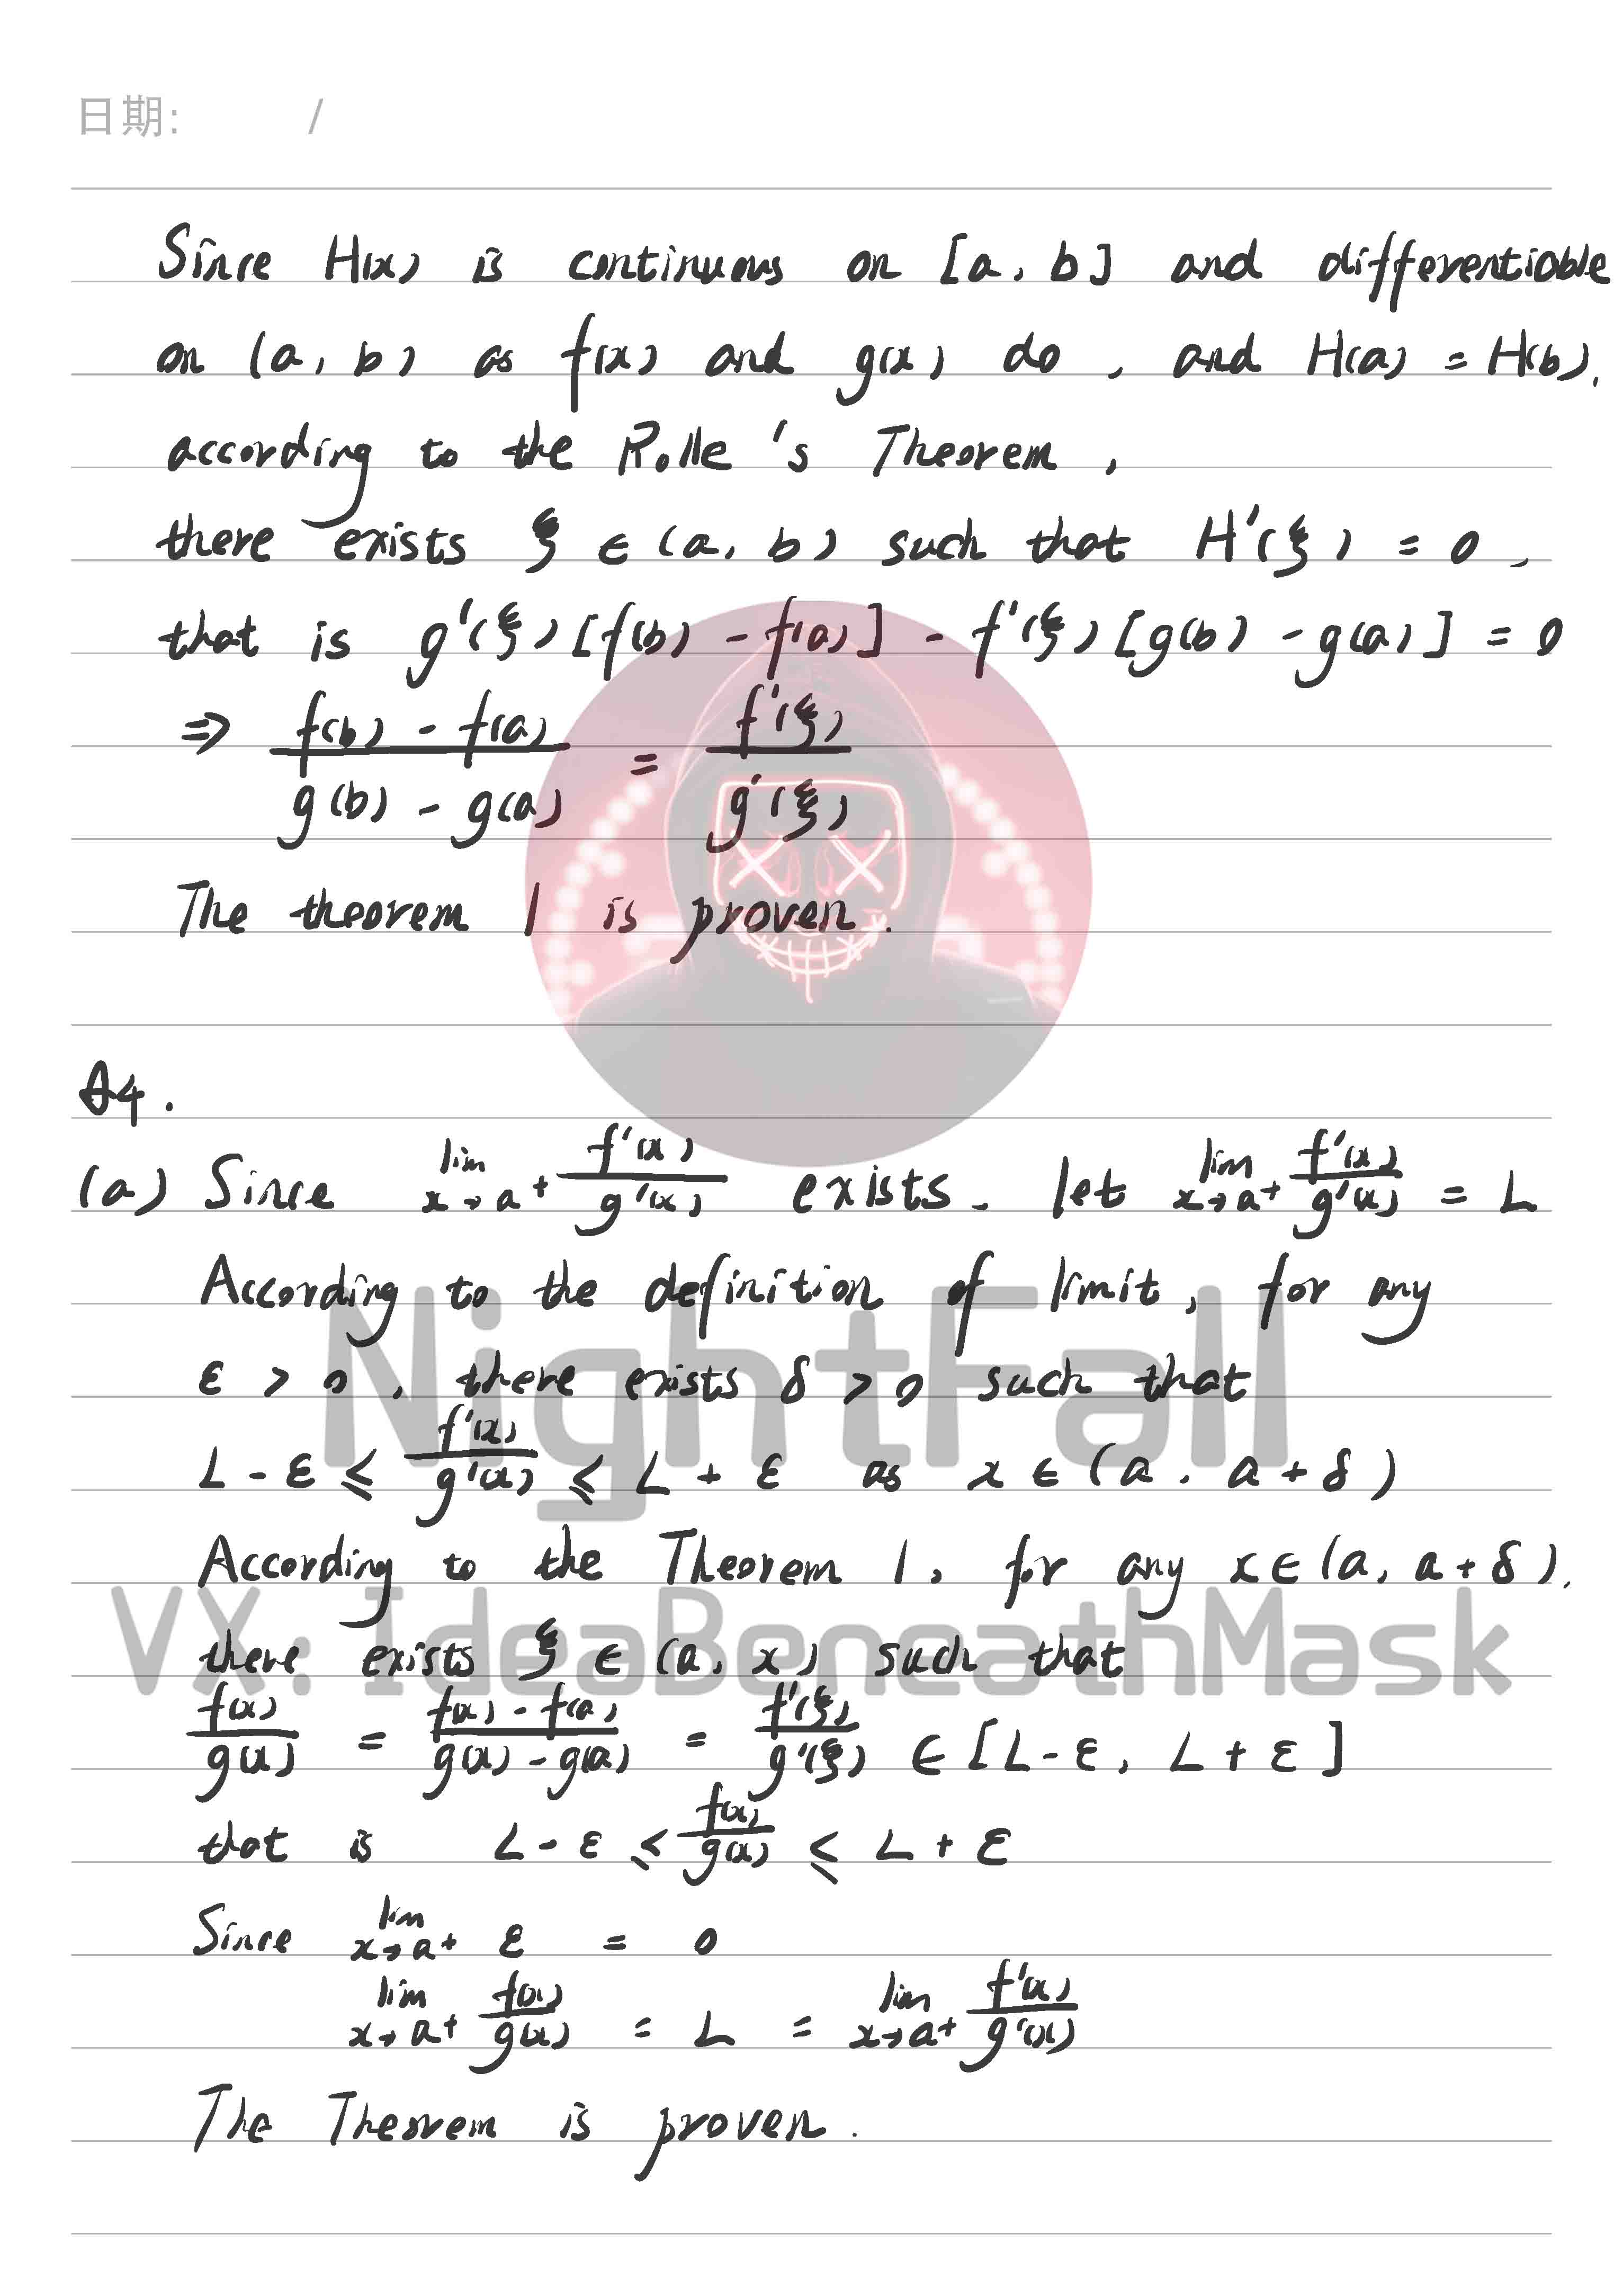 日期: /
Since H(x) is continuous on [a, b] and differentiable
on (a, b) as f(x) and g(x) do, and H(a) = H(b),
according to the Rolle's Theorem,
there exists ξ ∈ (a, b) such that H'(ξ) = 0,
that is g'(ξ)[f(b) - f(a)] - f'(ξ)[g(b) - g(a)] = 0
⇒ (f(b) - f(a)) / (g(b) - g(a)) = f'(ξ) / g'(ξ)
The theorem 1 is proven.
Q4.
(a) Since lim x→a+ f'(x)/g'(x) exists. let lim x→a+ f'(x)/g'(x) = L
According to the definition of limit, for any
ε > 0, there exists δ > 0 such that
L - ε ≤ f'(x)/g'(x) ≤ L + ε as x ∈ (a, a + δ)
According to the Theorem 1, for any x ∈ (a, a + δ),
there exists ξ ∈ (a, x) such that
f(x)/g(x) = (f(x) - f(a))/(g(x) - g(a)) = f'(ξ)/g'(ξ) ∈ [L - ε, L + ε]
that is L - ε ≤ f(x)/g(x) ≤ L + ε
Since lim x→a+ ε = 0
lim x→a+ f(x)/g(x) = L = lim x→a+ f'(x)/g'(x)
The Theorem is proven.
NightFall
VX: IdeaBeneathMask